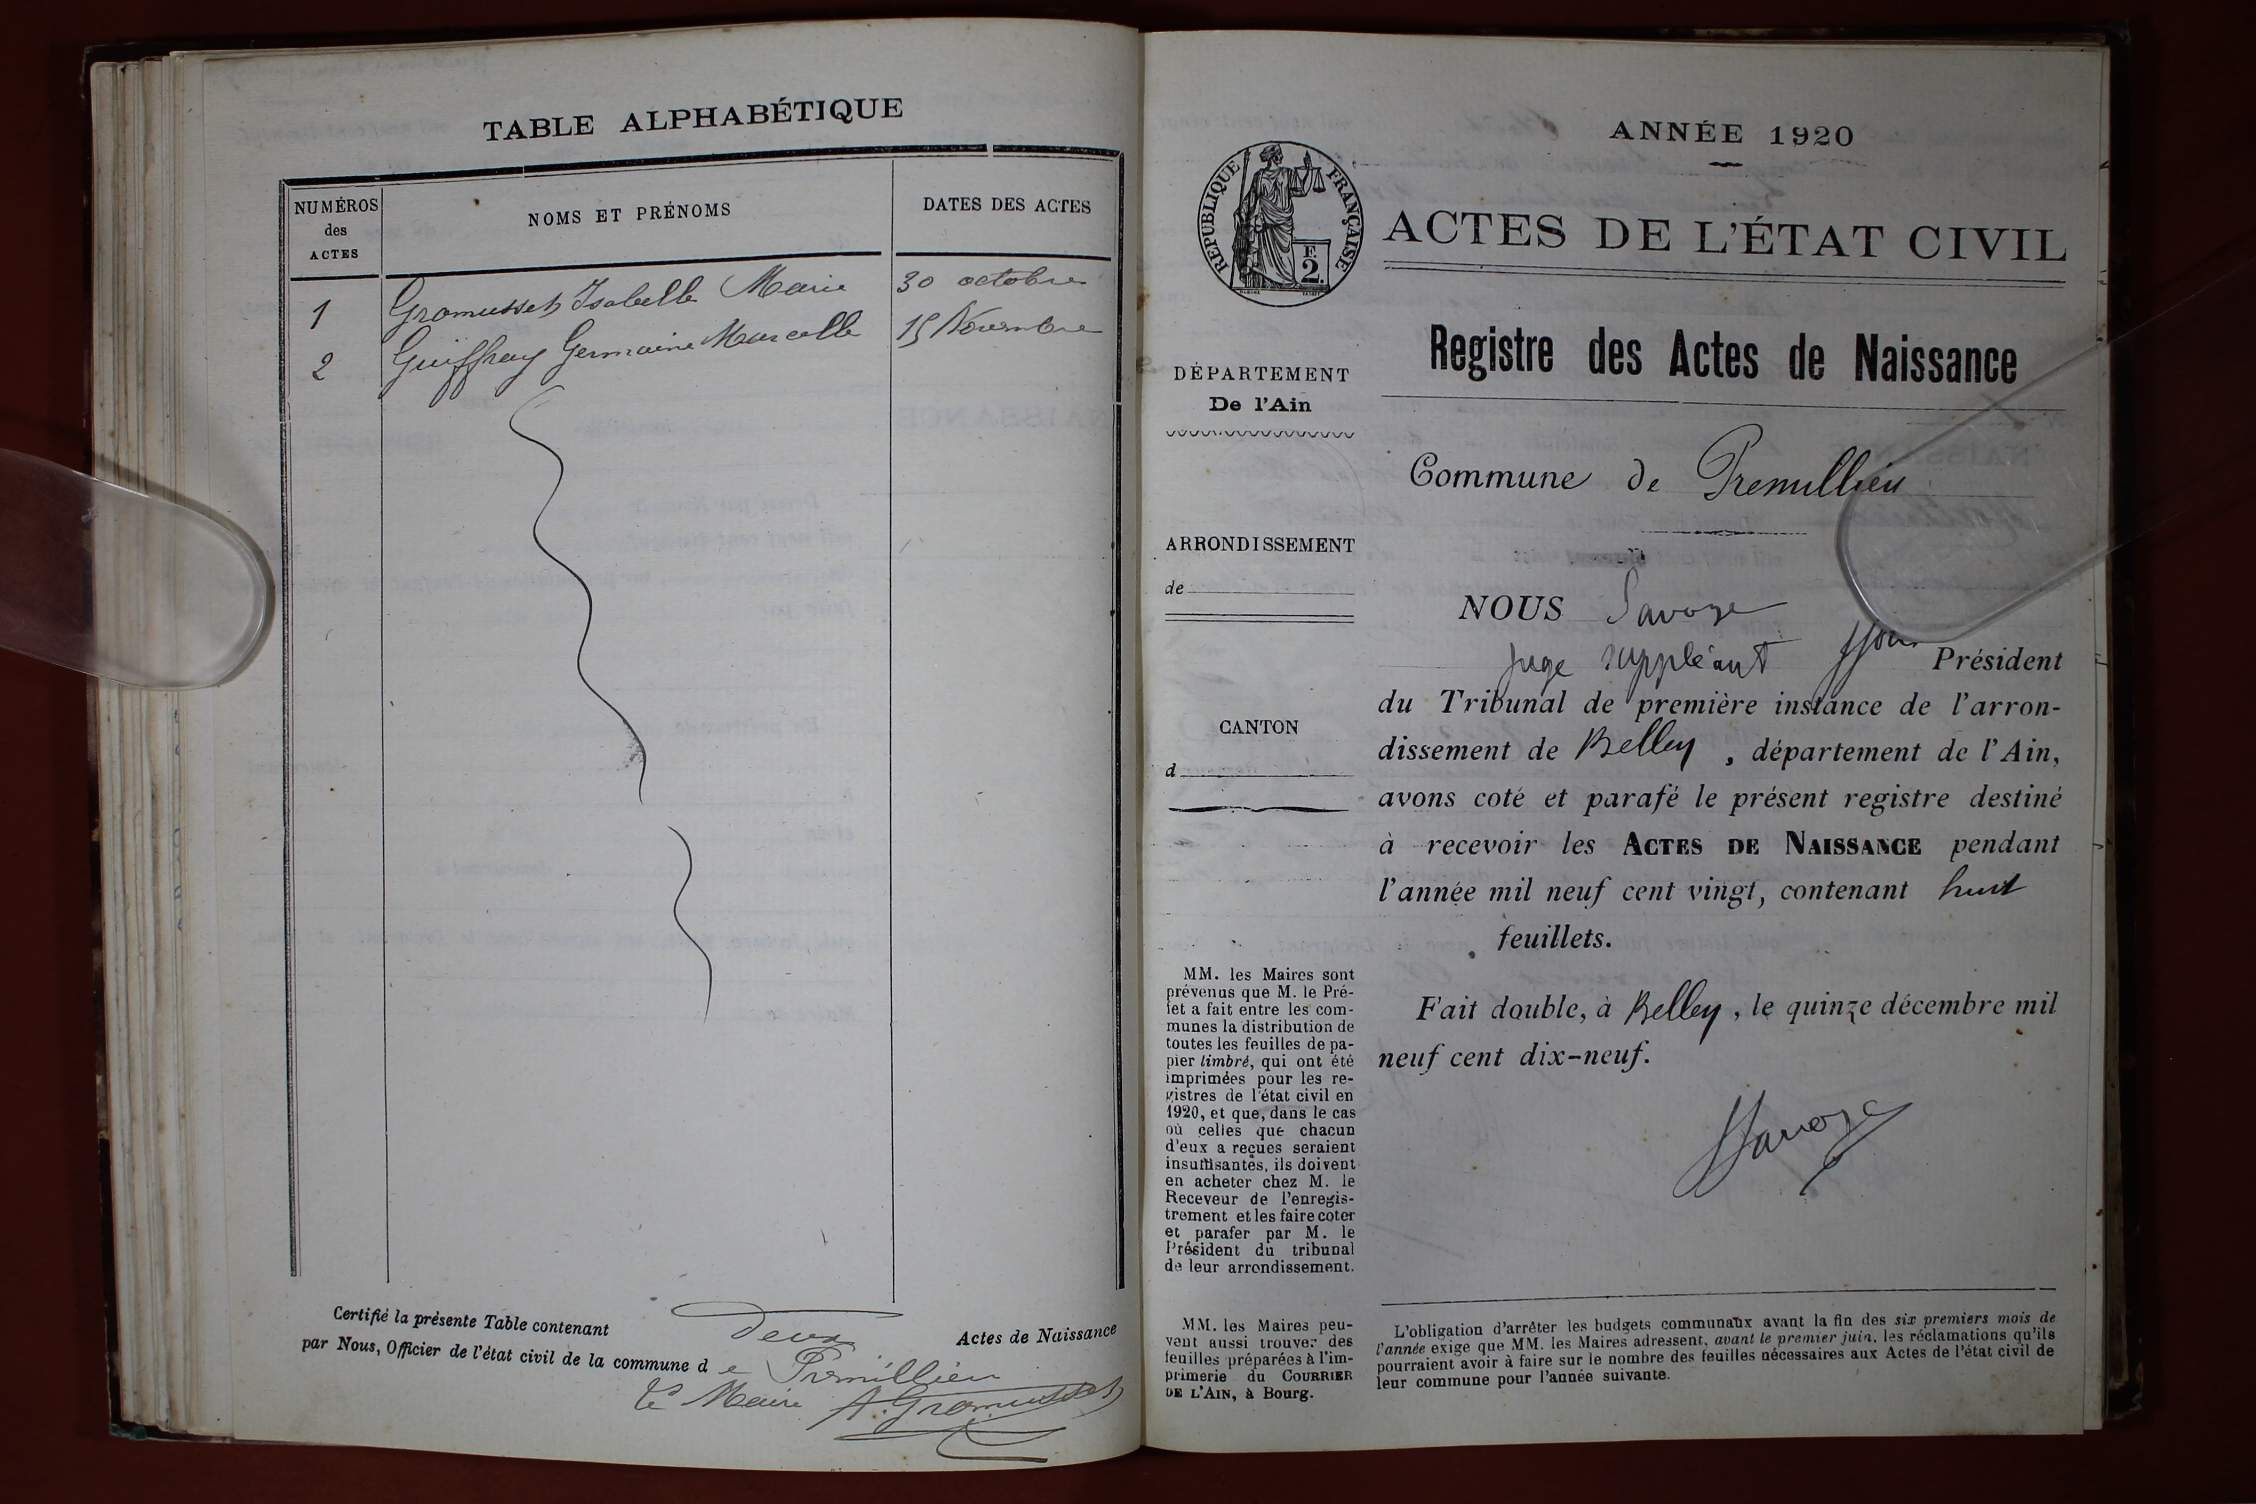 TABLE ALPHABÉTIQUE
NUMÉROS
des
ACTES
NOMS ET PRÉNOMS
DATES DES ACTES
1 Gromusset Isabelle Marie 30 octobre
2 Guiffray Germaine Marcelle 15 Novembre
Certifié la présente Table contenant Deux Actes de Naissance
par Nous, Officier de l'état civil de la commune d e Premillieu
Le Maire A. Gromusset
ANNÉE 1920
RÉPUBLIQUE FRANÇAISE
E
2.
ACTES DE L'ÉTAT CIVIL
Registre des Actes de Naissance
DÉPARTEMENT
De l'Ain
ARRONDISSEMENT
de
CANTON
d
MM. les Maires sont
prévenus que M. le Pré-
fet a fait entre les com-
munes la distribution de
toutes les feuilles de pa-
pier timbré, qui ont été
imprimées pour les re-
gistres de l'état civil en
1920, et que, dans le cas
où celles que chacun
d'eux a reçues seraient
insuffisantes, ils doivent
en acheter chez M. le
Receveur de l'enregis-
trement et les faire coter
et parafer par M. le
Président du tribunal
de leur arrondissement.
MM. les Maires peu-
vent aussi trouver des
feuilles préparées à l'im-
primerie du COURRIER
DE L'AIN, à Bourg.
Commune de Premillieu
NOUS Savoye
juge suppléant Président
du Tribunal de première instance de l'arron-
dissement de Belley, département de l'Ain,
avons coté et parafé le présent registre destiné
à recevoir les ACTES DE NAISSANCE pendant
l'année mil neuf cent vingt, contenant huit
feuillets.
Fait double, à Belley, le quinze décembre mil
neuf cent dix-neuf.
Savoye
L'obligation d'arrêter les budgets communaux avant la fin des six premiers mois de
l'année exige que MM. les Maires adressent, avant le premier juin, les réclamations qu'ils
pourraient avoir à faire sur le nombre des feuilles nécessaires aux Actes de l'état civil de
leur commune pour l'année suivante.